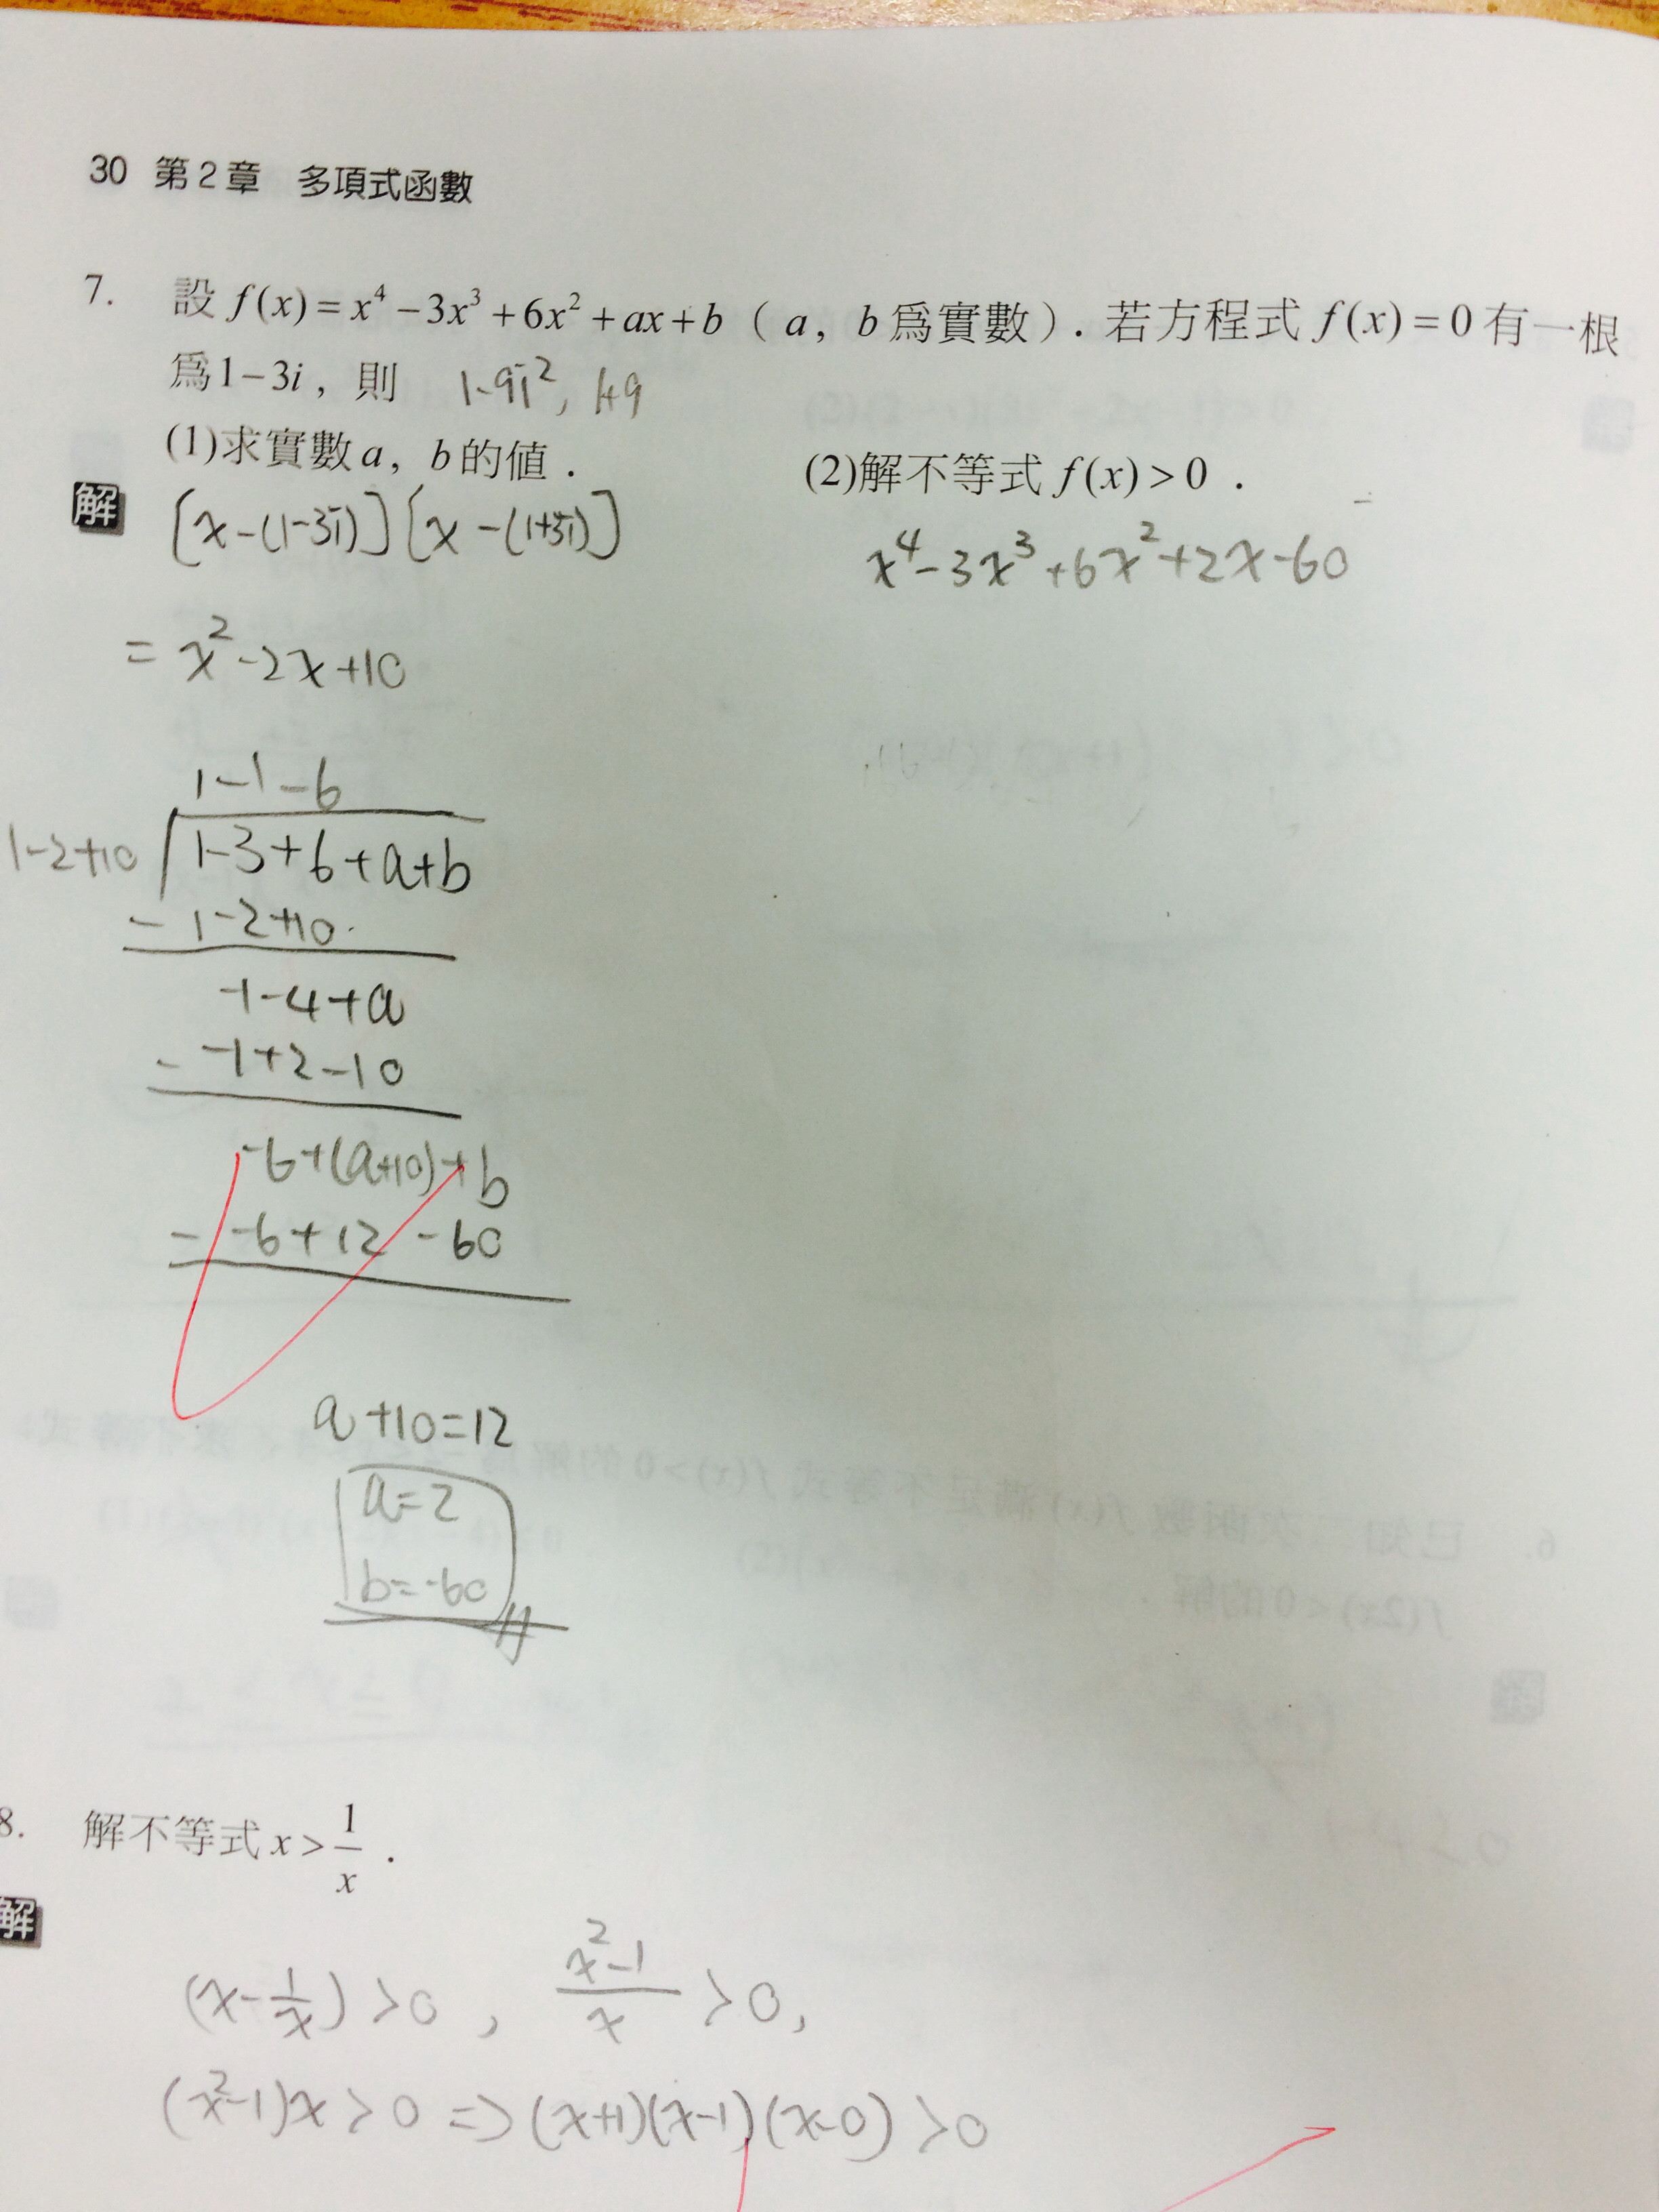 30 第2章 多項式函數
7. 設 f(x) = x⁴ − 3x³ + 6x² + ax + b ( a, b 為實數 ). 若方程式 f(x) = 0 有一根
為 1 − 3i , 則 1-9i², 1+9
(1)求實數 a, b 的值 .
(2)解不等式 f(x) > 0 .
解 [x-(1-3i)][x-(1+3i)]
x⁴-3x³+6x²+2x-60
= x²-2x+10
1-1-6
1-2+10 1-3+6+a+b
- 1-2+10
-1-4+a
- -1+2-10
-6+(a+10)+b
- -6+12-60
a+10=12
a=2
b=-60
8. 解不等式 x > 1/x .
解
(x-1/x) >0 , x²-1/x >0,
(x²-1)x>0 => (x+1)(x-1)(x-0) >0